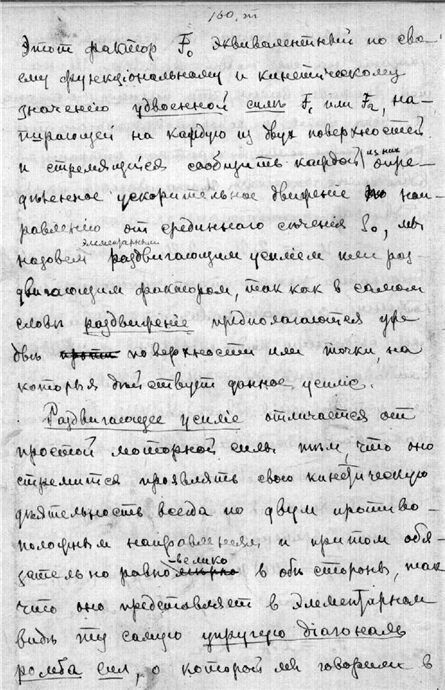 160, m
Этот фактор F₀ эквивалентный по сво-
ему функціональному и кинетическому
значенію удвоенной силѣ F₁ или F₂, на-
пирающей на каждую из двух поверхностей
из них
и стремящійся сообщить каждой опре-
дѣленное ускорительное движеніе по нап-
равленію от срединнаго сѣченія S₀, мы
элементарным
назовем раздвигающим усиліем или раз-
двигающим фактором, так как в самом
словѣ раздвиженіе предполагаются уже
двѣ поверхности или точки на
которыя дѣйствует данное усиліе.
Раздвигающее усиліе отличается от
простой моторной силы тѣм, что оно
стремится проявлять свою кинетическую
дѣятельность всегда по двум противо-
положным направленіям и притом обя-
велико
зательно равно в обѣ стороны, так
что оно представляет в элементарном
видѣ ту самую упругую діагональ
ромба сил, о которой мы говорили в